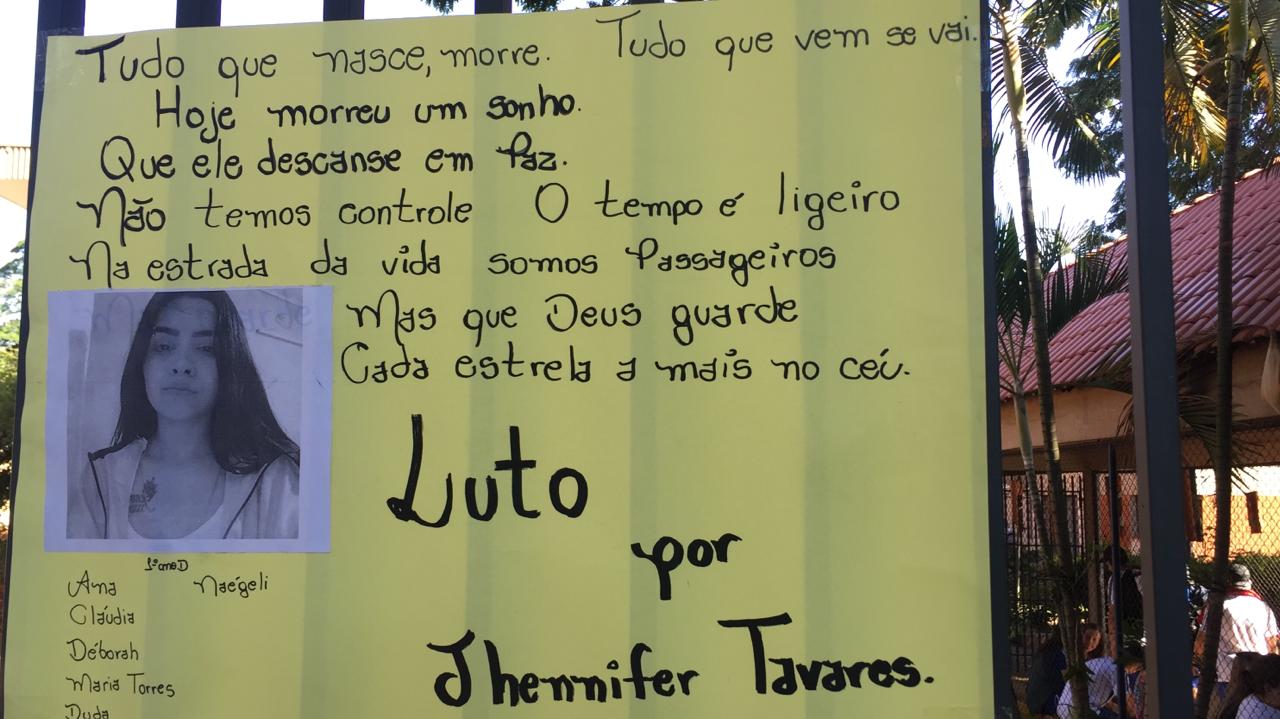 Tudo que nasce, morre. Tudo que vem se vai.
Hoje morreu um sonho.
Que ele descanse em Paz.
Não temos controle O tempo é ligeiro
Na estrada da vida somos Passageiros
Mas que Deus guarde
Cada estrela a mais no céu.
Luto
por
Jhennifer Tavares.
1º ano D
Ana Naégeli
Cláudia
Déborah
Maria Torres
Duda